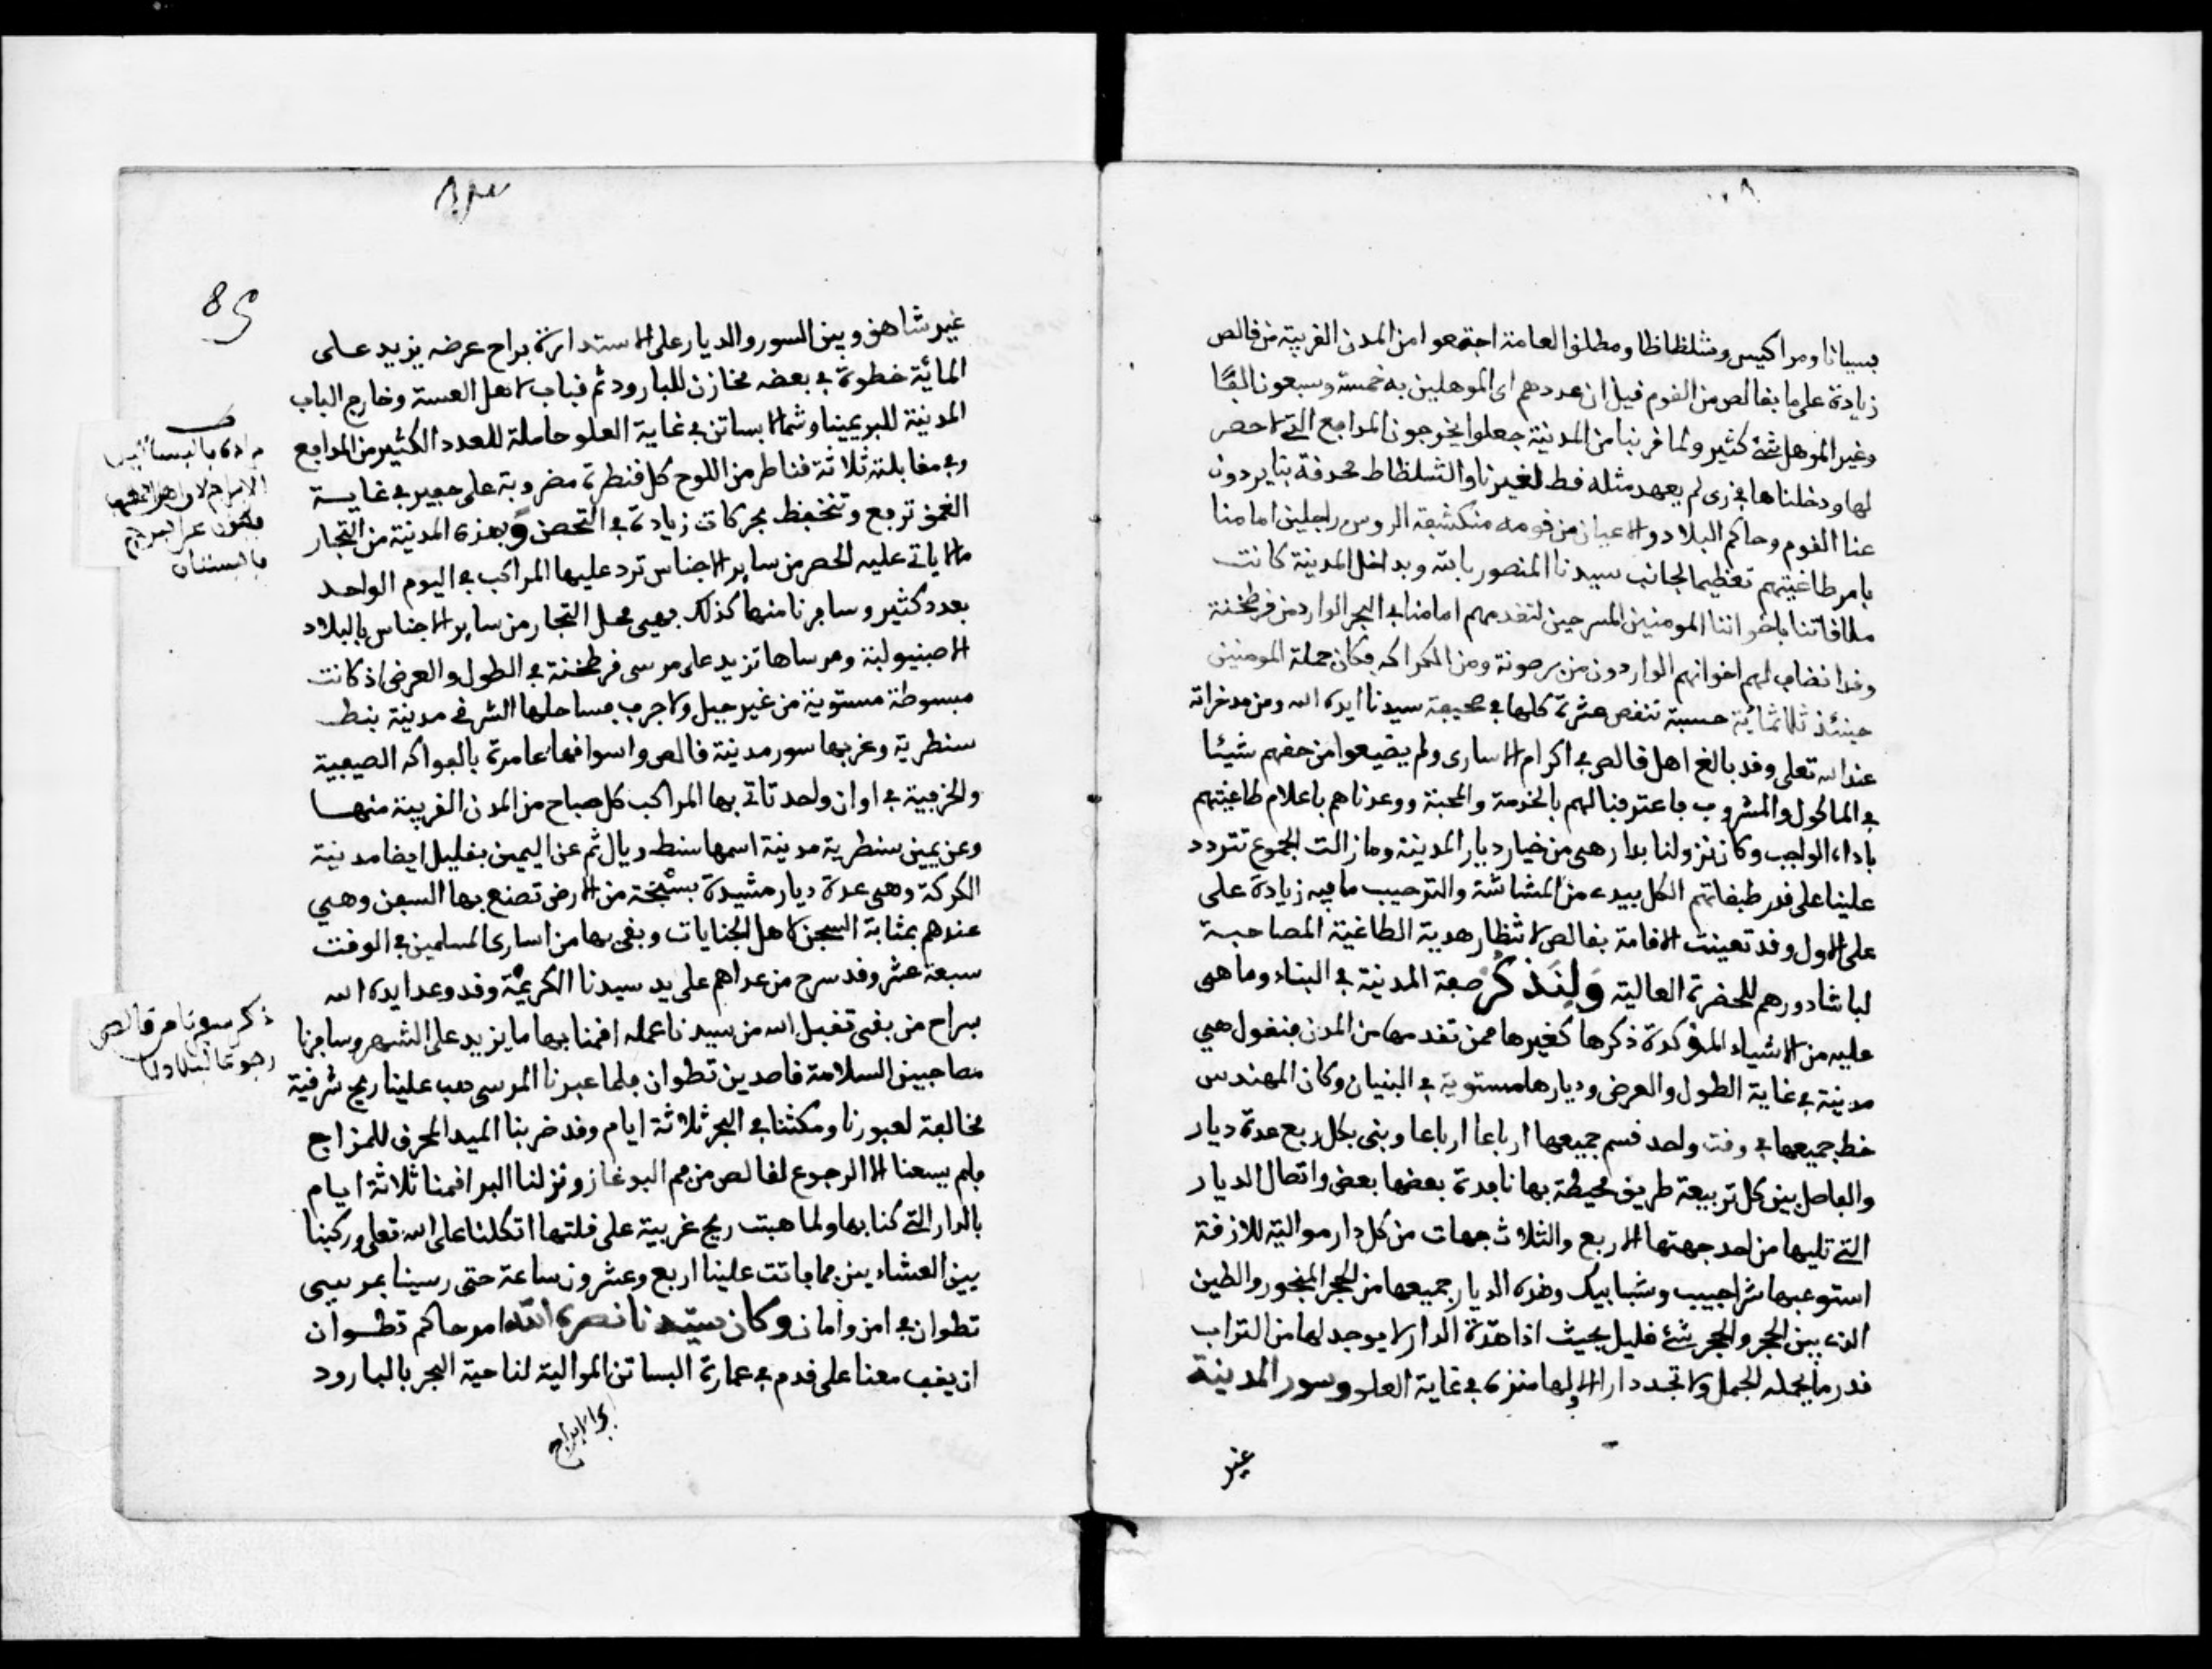 بسيانا ومراكيس وشلظاظا ومطلق العامة اجتمعوا من المدن القريبة من قالص
زيادة على ما بقالص من القوم قيل ان عددهم اى الموهلين به خمسة وسبعون الفا
وغير الموهل شئ كثير ولما قربنا من المدينة جعلوا يخرجون المدافع التي لا حصر
لها ودخلناها في زى لم يعهد مثله قط لغيرنا والشلظاظ محدقة بنا يردون
عنا القوم وحاكم البلاد والاعيان من قومه منكشفة الروس راجلين امامنا
بامر طاغيتهم تعظيما لجانب سيدنا المنصور بالله وبداخل المدينة كانت
ملاقاتنا باخواننا المومنين المسرحين لتقدمهم امامنا في البحر الوارد من قرطخنة
وقد انضاف لهم اخوانهم الواردون من برصونة ومن الكراكه فكان جملة المومنين
حينئذ ثلاثمائة حسبة تنقص عشرة كلها في صحيفة سيدنا ايده الله ومن مدخراته
عند الله تعلى وقد بالغ اهل قالص في اكرام الاسارى ولم يضيعوا من حقهم شيئا
في الماكول والمشروب فاعترفنا لهم بالخدمة والمحبة ووعدناهم باعلام طاغيتهم
باداء الواجب وكان نزولنا بدار هى من خيار ديار المدينة وما زالت الجموع تتردد
علينا على قدر طبقاتهم الكل يبدء من المشاشة والترحيب ما فيه زيادة على
على الاول وقد تعينت الاقامة بقالص لانتظار هدية الطاغية المصاحبة
لباشادورهم للحضرة العالية ولنذكر صفة المدينة في البناء وما هى
عليه من الاشياء المؤكدة ذكرها كغيرها ممن تقدمها من المدن فنقول هي
مدينة في غاية الطول والعرض وديارها مستوية في البنيان وكان المهندس
خط جميعها في وقت واحد قسم جميعها ارباعا ارباعا وبنى بكل ربع عدة ديار
والفاصل بين كل تربيعة طريق محيطة بها نافدة بعضها بعض واتصال الديار
التي تليها من احد جهتها الاربع والثلاث جهات من كل دار موالية للازقة
استوعبها شراجيب وشبابيك وهذه الديار جميعها من الحجر المنجور والطين
الذى بين الحجر والحجر شئ قليل بحيث اذا هدت الدار لا يوجد لها من التراب
قدر ما يحمله الجمل ولا تجد دارا الا ولها منزه في غاية العلو وسور المدينة
غير
85
غير شاهق وبين السور والديار على الاستدارة براح عرضه يزيد على
المائة خطوة في بعضه مخازن للبارود ثم قباب لاهل العسة وخارج الباب
المدينة للبر يمينا وشمالا بساتن في غاية العلو حاملة للعدد الكثير من المدافع
وفي مقابلته ثلاثة قناطر من اللوح كل قنطرة مضروبة على حفير في غاية
الغمق ترفع وتنخفظ بحركات زيادة في التحصن وبهذه المدينة من التجار
ما لا ياتي عليه الحصر من ساير الاجناس ترد عليها المراكب في اليوم الواحد
بعدد كثير وسافرنا منها كذلك فهى محل التجار من ساير الاجناس بالبلاد
الاصبنيولية ومرساها تزيد على مرسى قرطخنة في الطول والعرض اذ كانت
مبسوطة مستوية من غير جبل ولا جرف بساحلها الشرقي مدينة بنط
سنطرية وغربها سور مدينة قالص واسواقها عامرة بالفواكه الصيفية
والخرفية في اوان واحد تاتي بها المراكب كل صباح من المدن القريبة منها
وعن يمين سنطرية مدينة اسمها بنط ريال ثم عن اليمين بقليل ايضا مدينة
الكركة وهى عدة ديار مشيدة بسبخة من الارض تصنع بها السفن وهي
عندهم بمثابة السجن لاهل الجنايات وبقى بها من اسارى المسلمين في الوقت
سبعة عشر وقد سرح من عداهم على يد سيدنا الكريمة وقد وعد ايده الله
بسراح من بقى تقبل الله من سيدنا عمله اقمنا بها ما يزيد على الشهر وسافرنا
مصاحبين السلامة قاصدين تطوان فلما عبرنا المرسى هب علينا ريح شرقية
مخالفة لعبورنا ومكثنا في البحر ثلاثة ايام وقد ضربنا الميد المحرف للمزاج
فلم يسعنا الا الرجوع لقالص من فم البوغاز ونزلنا البر اقمنا ثلاثة ايام
بالدار التي كنا بها ولما هبت ريح غربية على قلتها اتكلنا على الله تعلى وركبنا
بين العشاءين فما باتت علينا اربع وعشرون ساعة حتى رسينا بمرسى
تطوان في امن وامان وكان سيدنا نصره الله امر حاكم تطوان
ان يقف معنا على قدم في عمارة البساتن الموالية لناحية البحر بالبارود
مراده بالبساتين
الابراج لان
يعبرون عن البرج
بالبستان
ذكر سفرنا من قالص
رجوعا لبلادنا